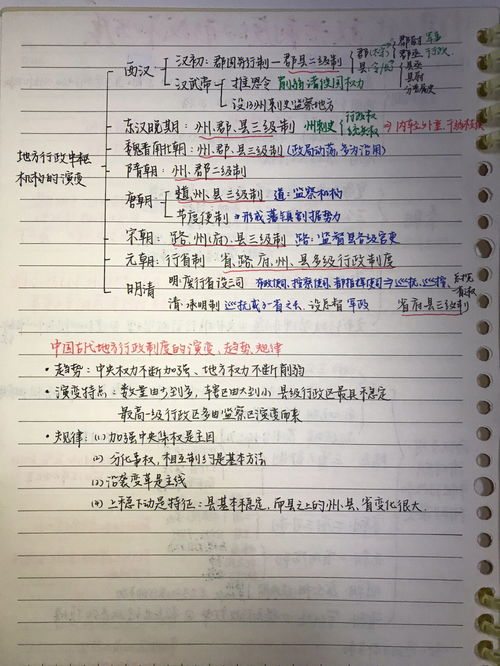 地方行政中枢机构的演变
西汉
汉初：郡国并行制—郡县二级制
郡(太守) 郡尉 军事
郡丞 行政
县(令/长) 县丞
县尉
汉武帝 推恩令 削弱诸侯国权力
设13州刺史监察地方
东汉晚期：州、郡、县三级制 州刺史 行政权
统兵权
⇒内轻外重、
魏晋南北朝：州、郡、县三级制 (政局动荡，多为沿用)
隋朝：州、郡二级制
唐朝 道、州、县三级制 道：监察机构
节度使制 ⇒形成藩镇割据势力
宋朝：路、州(府)、县三级制 路：监督县各级官吏
元朝：行省制 省、路、府、州、县多级行政制度
明清 明：废行省设三司 布政使司、按察使司、都指挥使司⇒巡抚、
清：承明制 巡抚成了省之长，设总督 军政 省府县三级制
中国古代地方行政制度的演变、趋势、规律
·趋势：中央权力不断加强、地方权力不断削弱
·演变特点：数量由少到多，辖区由大到小 县级行政区最具稳定
最高一级行政区多由监察区演变而来
·规律：(1)加强中央集权是主因
(2)分化事权，相互制约是基本方法
(3)沿袭变革是主线
(4)上稳下动是特征：县基本稳定，而县之上的州、县、省变化很大.